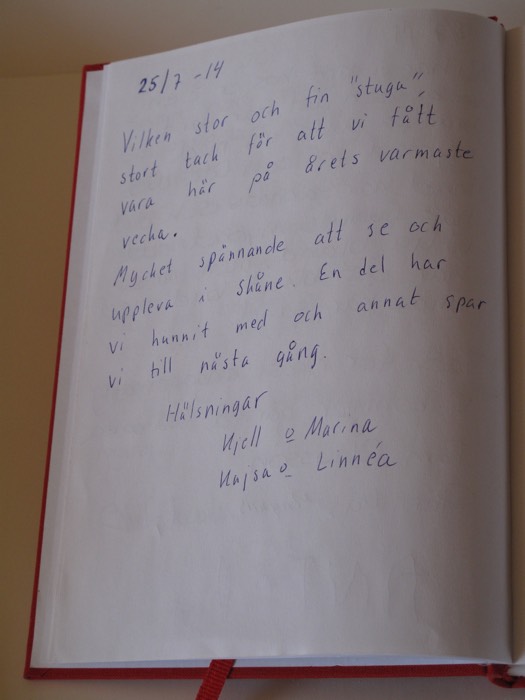 25/7 -14
Vilken stor och fin "stuga",
stort tack för att vi fått
vara här på årets varmaste
vecka.
Mycket spännande att se och
uppleva i Skåne. En del har
vi hunnit med och annat spar
vi till nästa gång.
Hälsningar
Kjell o Marina
Kajsa o Linnéa